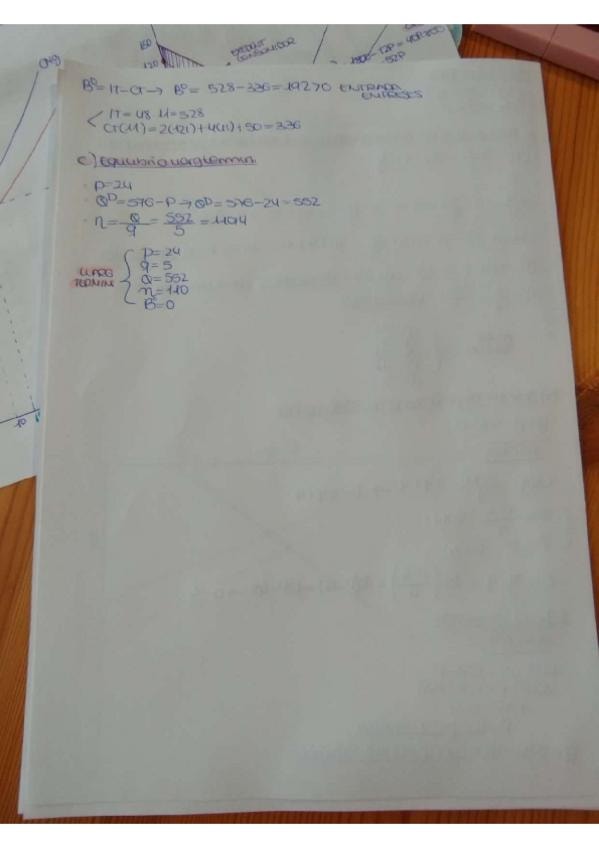 150
120
EXCEDENT
CONSUMIDOR
Bº = IT - CT → Bº = 528 - 336 = 192 > 0 ENTRADA
EMPRESES
IT = 48 · 11 = 528
CT(11) = 2(121) + 4(11) + 50 = 336
c) Equilibri a llarg termini
· P = 24
· Qᴰ = 576 - P → Qᴰ = 576 - 24 = 552
· n = Q/q = 552/5 = 110'4
LLARG
TERMINI
P = 24
q = 5
Q = 552
n = 110
Bº = 0
10